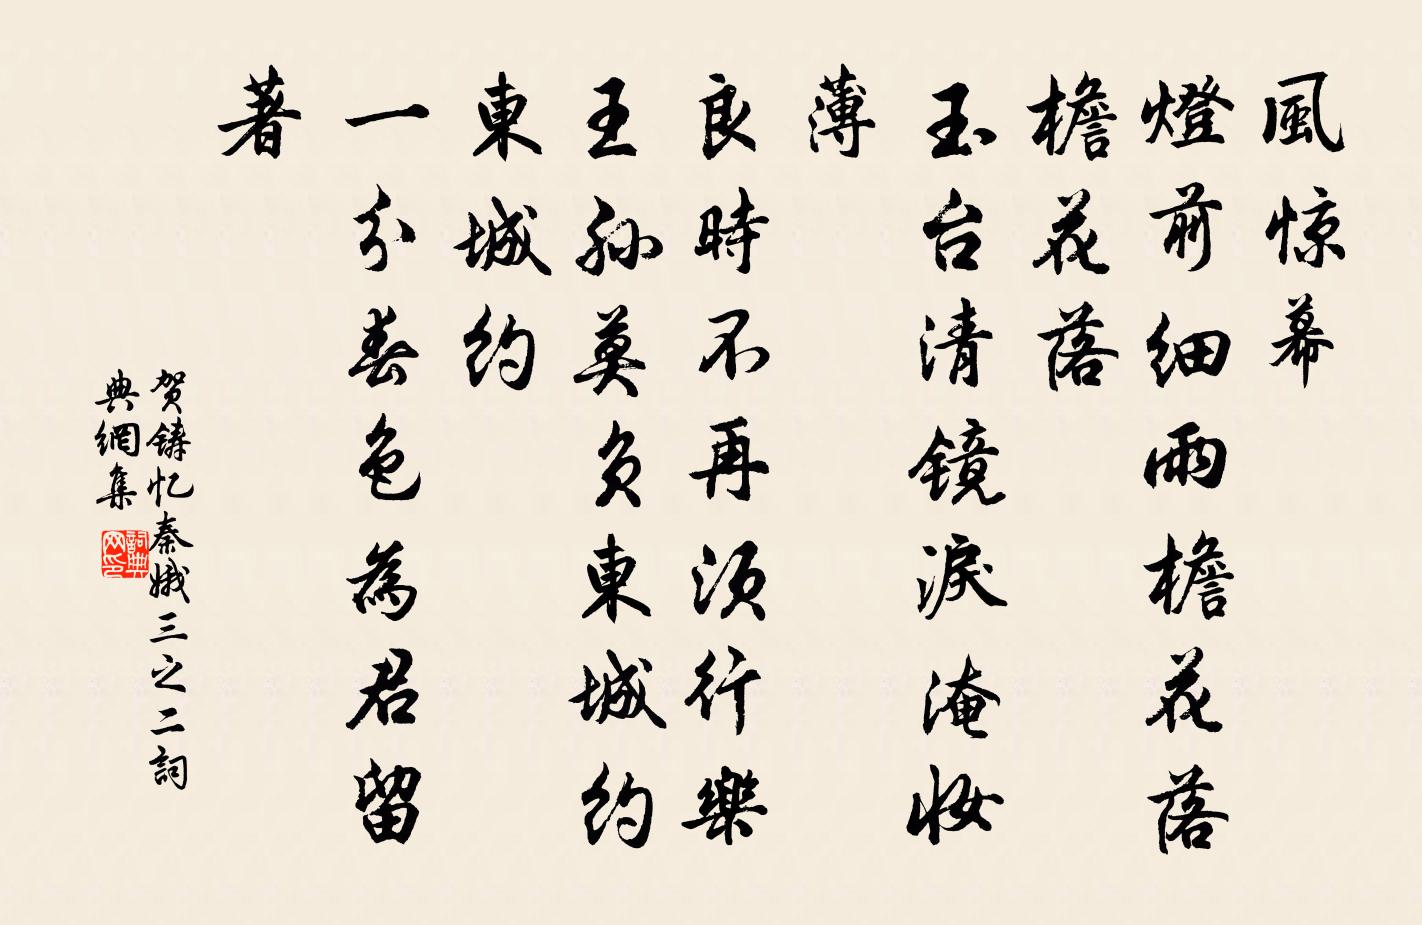 風惊幕
燈前細雨檐花落
檐花落
玉台清鏡淚淹妝
薄
良時不再須行樂
王孫莫負東城約
東城約
一分春色為君留
著
贺鑄忆秦娥三之二詞
典網集
詞典
网印